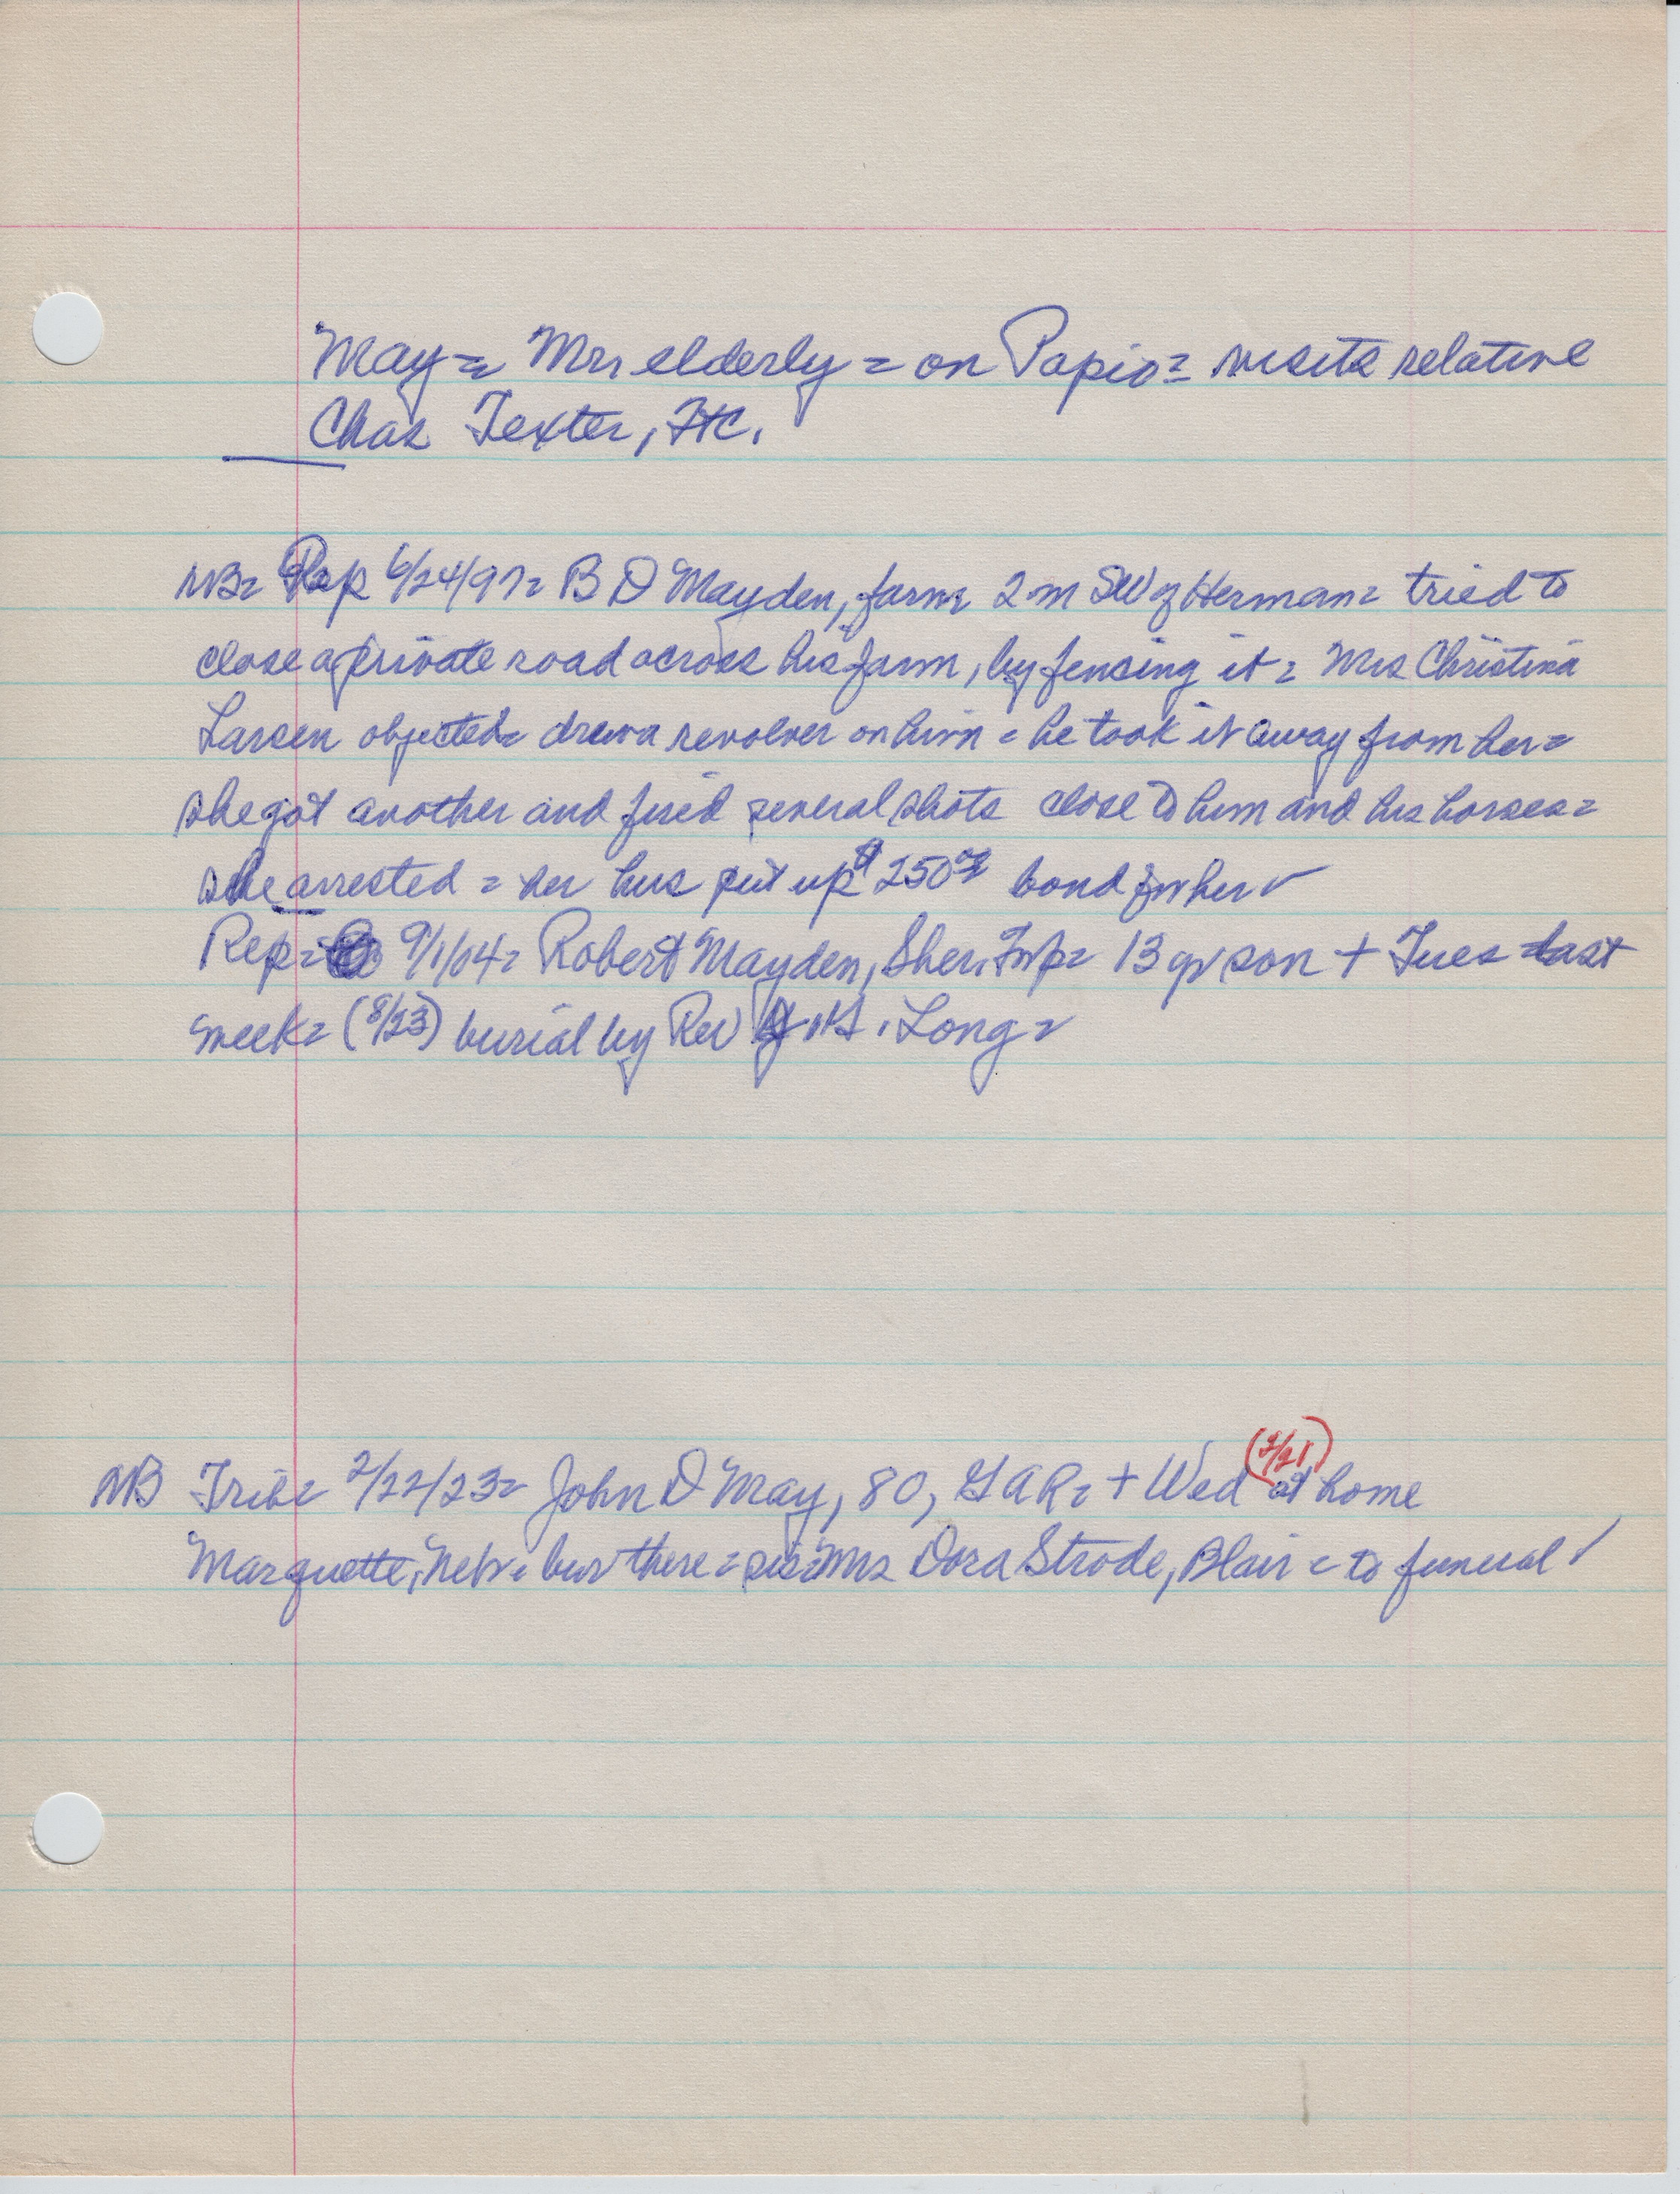 May = Mr. elderly = on Papio = visits relative
Chas Texter, FtC.
NB= Rep 6/24/97= B D Mayden, farms 2 m SW of Herman= tried to
close a private road across his farm, by fencing it = Mrs Christina
Larsen objected= drew a revolver on him = he took it away from her=
she got another and fired several shots close to him and his horses=
she arrested = her hus put up $250 bond for her ✓
Rep= 9/1/04= Robert Mayden, Sher. Twp= 13 yr son + Tues last
week= (8/23) burial by Rev H. Long=
NB Trib= 2/22/23= John D May, 80, GAR= + Wed (2/21) at home
Marquette, Neb= bur there = sis= Mrs Dora Strode, Blair = to funeral ✓